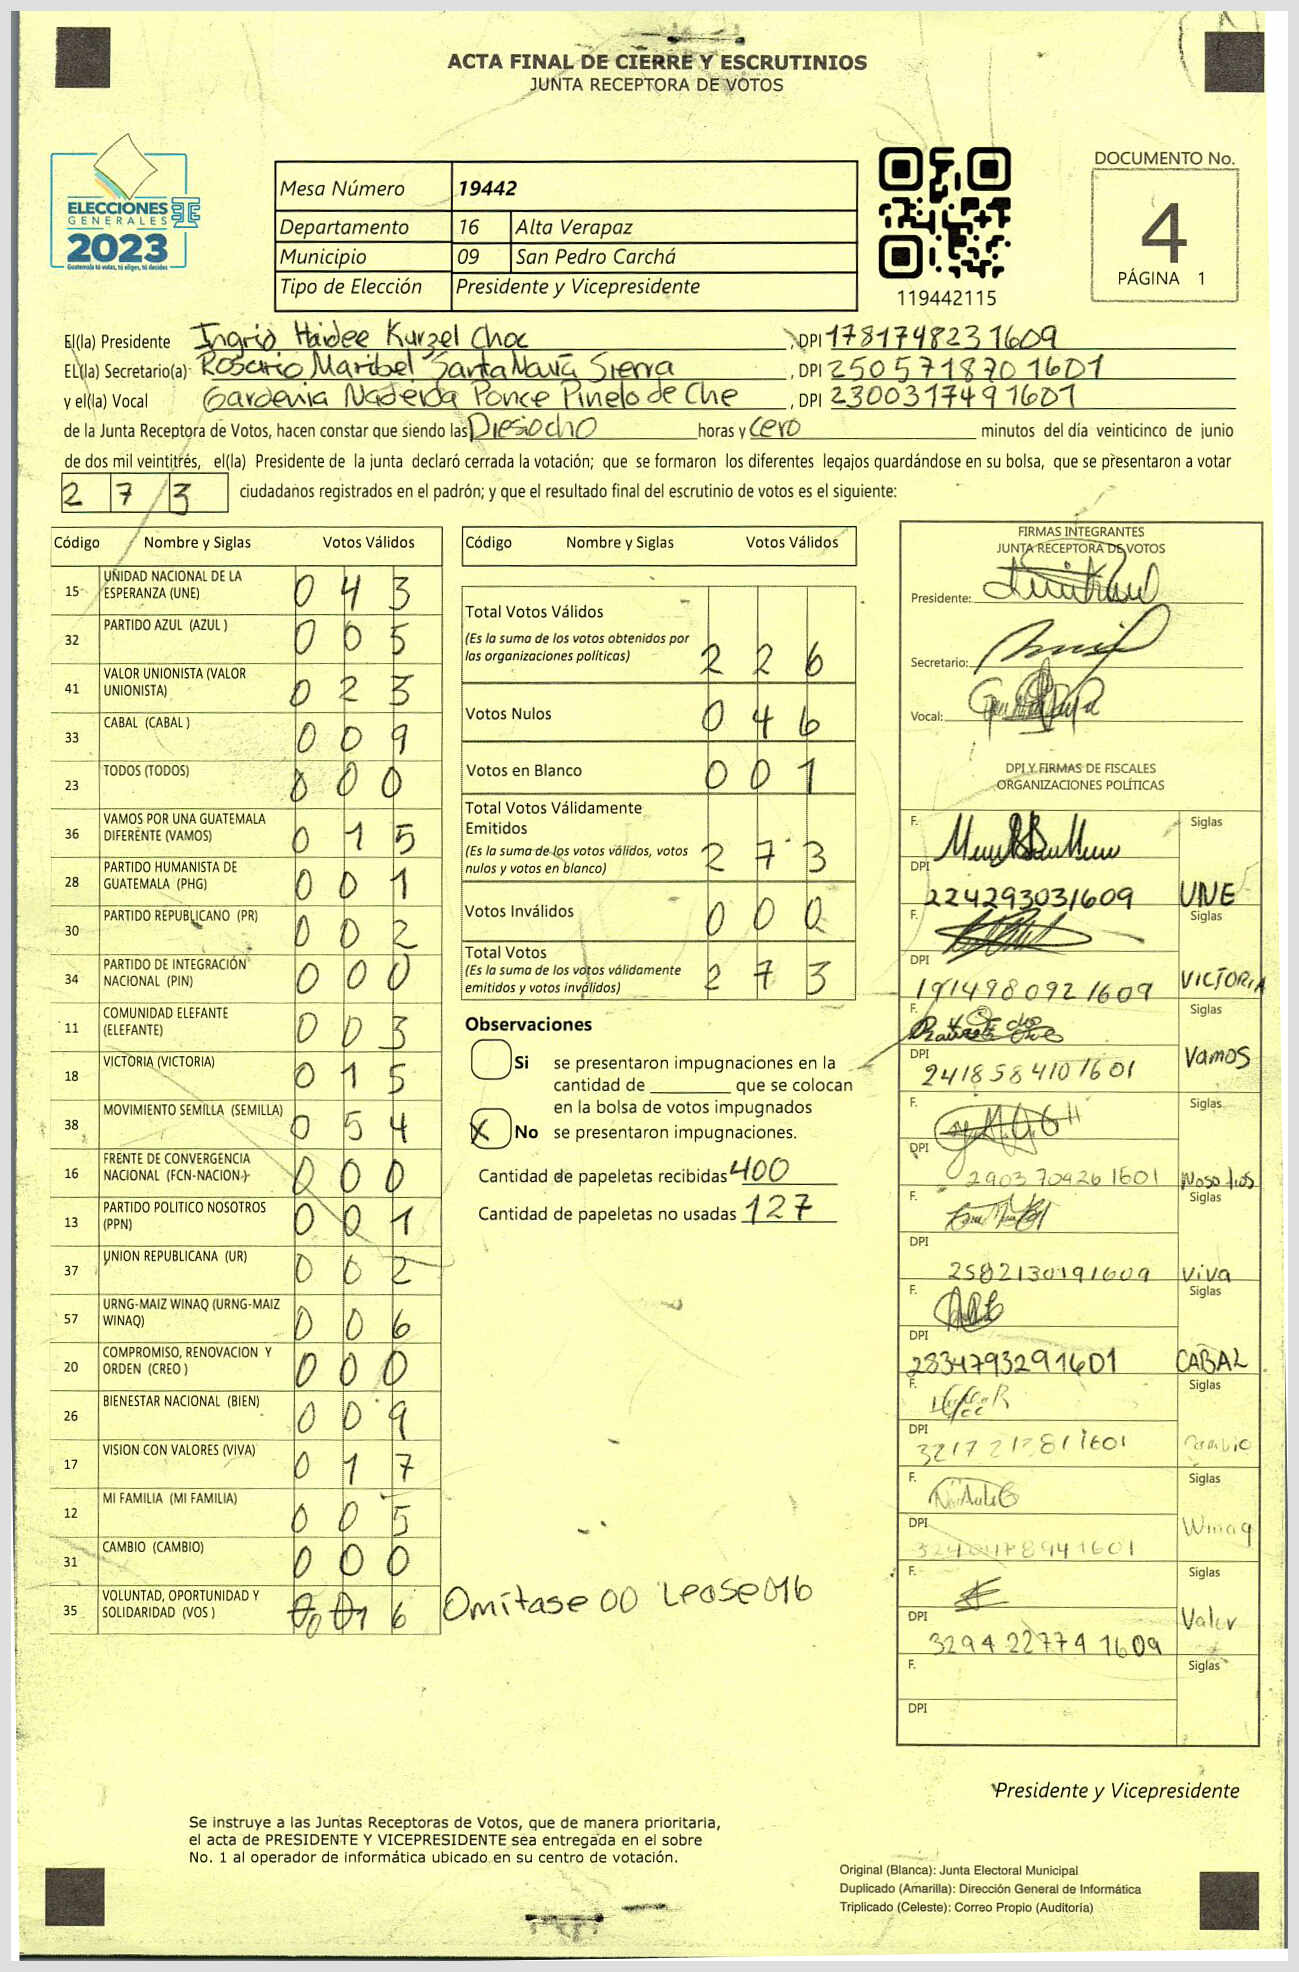 ACTA FINAL DE CIERRE Y ESCRUTINIOS
JUNTA RECEPTORA DE VOTOS
ELECCIONES
GENERALES
2023
Guatemala tú votas, tú eliges, tú decides
Mesa Número 19442
Departamento 16 Alta Verapaz
Municipio 09 San Pedro Carchá
Tipo de Elección Presidente y Vicepresidente
119442115
DOCUMENTO No.
4
PÁGINA 1
El(la) Presidente Ingrid Haidee Kurzel Choc, DPI 1781748231609
EL(la) Secretario(a) Rosario Maribel Santa María Sierra, DPI 2505718701601
y el(la) Vocal Gardenia Nadeida Ponce Pinelo de Che, DPI 2300317491601
de la Junta Receptora de Votos, hacen constar que siendo las Diesiocho horas y cero minutos del día veinticinco de junio
de dos mil veintitrés, el(la) Presidente de la junta declaró cerrada la votación; que se formaron los diferentes legajos guardándose en su bolsa, que se presentaron a votar
2 7 3 ciudadanos registrados en el padrón; y que el resultado final del escrutinio de votos es el siguiente:
Código Nombre y Siglas Votos Válidos
15 UNIDAD NACIONAL DE LA ESPERANZA (UNE) 0 4 3
32 PARTIDO AZUL (AZUL ) 0 0 5
41 VALOR UNIONISTA (VALOR UNIONISTA) 0 2 3
33 CABAL (CABAL ) 0 0 9
23 TODOS (TODOS) 0 0 0
36 VAMOS POR UNA GUATEMALA DIFERENTE (VAMOS) 0 1 5
28 PARTIDO HUMANISTA DE GUATEMALA (PHG) 0 0 1
30 PARTIDO REPUBLICANO (PR) 0 0 2
34 PARTIDO DE INTEGRACIÓN NACIONAL (PIN) 0 0 0
11 COMUNIDAD ELEFANTE (ELEFANTE) 0 0 3
18 VICTORIA (VICTORIA) 0 1 5
38 MOVIMIENTO SEMILLA (SEMILLA) 0 5 4
16 FRENTE DE CONVERGENCIA NACIONAL (FCN-NACION) 0 0 0
13 PARTIDO POLITICO NOSOTROS (PPN) 0 0 1
37 UNION REPUBLICANA (UR) 0 0 2
57 URNG-MAIZ WINAQ (URNG-MAIZ WINAQ) 0 0 6
20 COMPROMISO, RENOVACION Y ORDEN (CREO ) 0 0 0
26 BIENESTAR NACIONAL (BIEN) 0 0 9
17 VISION CON VALORES (VIVA) 0 1 7
12 MI FAMILIA (MI FAMILIA) 0 0 5
31 CAMBIO (CAMBIO) 0 0 0
35 VOLUNTAD, OPORTUNIDAD Y SOLIDARIDAD (VOS ) 0 1 6 Omitase 00 Lease 016
Código Nombre y Siglas Votos Válidos
Total Votos Válidos
(Es la suma de los votos obtenidos por
las organizaciones políticas) 2 2 6
Votos Nulos 0 4 6
Votos en Blanco 0 0 1
Total Votos Válidamente
Emitidos
(Es la suma de los votos válidos, votos
nulos y votos en blanco) 2 7 3
Votos Inválidos 0 0 0
Total Votos
(Es la suma de los votos válidamente
emitidos y votos inválidos) 2 7 3
Observaciones
Si se presentaron impugnaciones en la
cantidad de ________ que se colocan
en la bolsa de votos impugnados
X No se presentaron impugnaciones.
Cantidad de papeletas recibidas 400
Cantidad de papeletas no usadas 127
FIRMAS INTEGRANTES
JUNTA RECEPTORA DE VOTOS
Presidente:
Secretario:
Vocal:
DPI Y FIRMAS DE FISCALES
ORGANIZACIONES POLÍTICAS
F. Siglas
DPI 224293031609 UNE
F. Siglas
DPI 1914980921609 VICTORIA
F. Siglas
DPI 2418584101601 Vamos
F. Siglas
DPI 2903709261601 Nosotros
F. Siglas
DPI 2582130191609 Viva
F. Siglas
DPI 2834793291601 CABAL
F. Siglas
DPI Cambio
F. Siglas
DPI Winaq
F. Siglas
DPI 3294227741609 Valor
F. Siglas
DPI
Presidente y Vicepresidente
Se instruye a las Juntas Receptoras de Votos, que de manera prioritaria,
el acta de PRESIDENTE Y VICEPRESIDENTE sea entregada en el sobre
No. 1 al operador de informática ubicado en su centro de votación.
Original (Blanca): Junta Electoral Municipal
Duplicado (Amarilla): Dirección General de Informática
Triplicado (Celeste): Correo Propio (Auditoría)